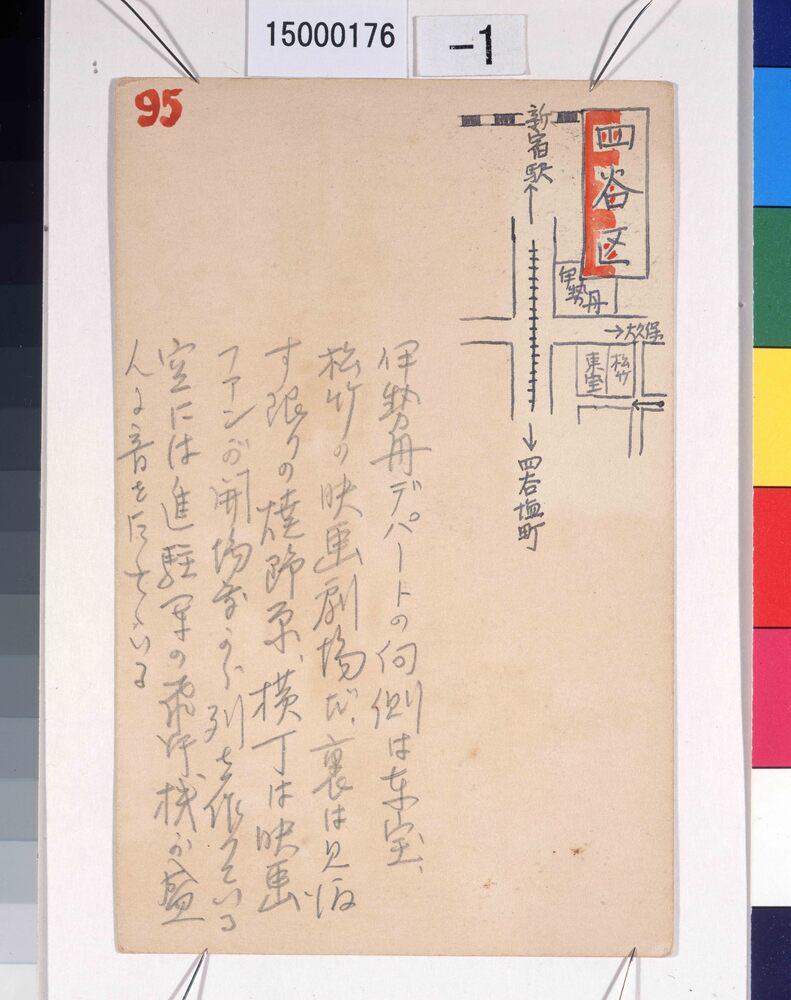 15000176
-1
95
四谷区
新宿駅
伊勢丹
→大久保
松竹
東宝
四谷塩町
伊勢丹デパートの向側は東宝、
松竹の映画劇場だ、裏は見渡
す限りの焼野原、横丁は映画
ファンが開場前から列を作つている
空には進駐軍の飛行機が盛
んに音を